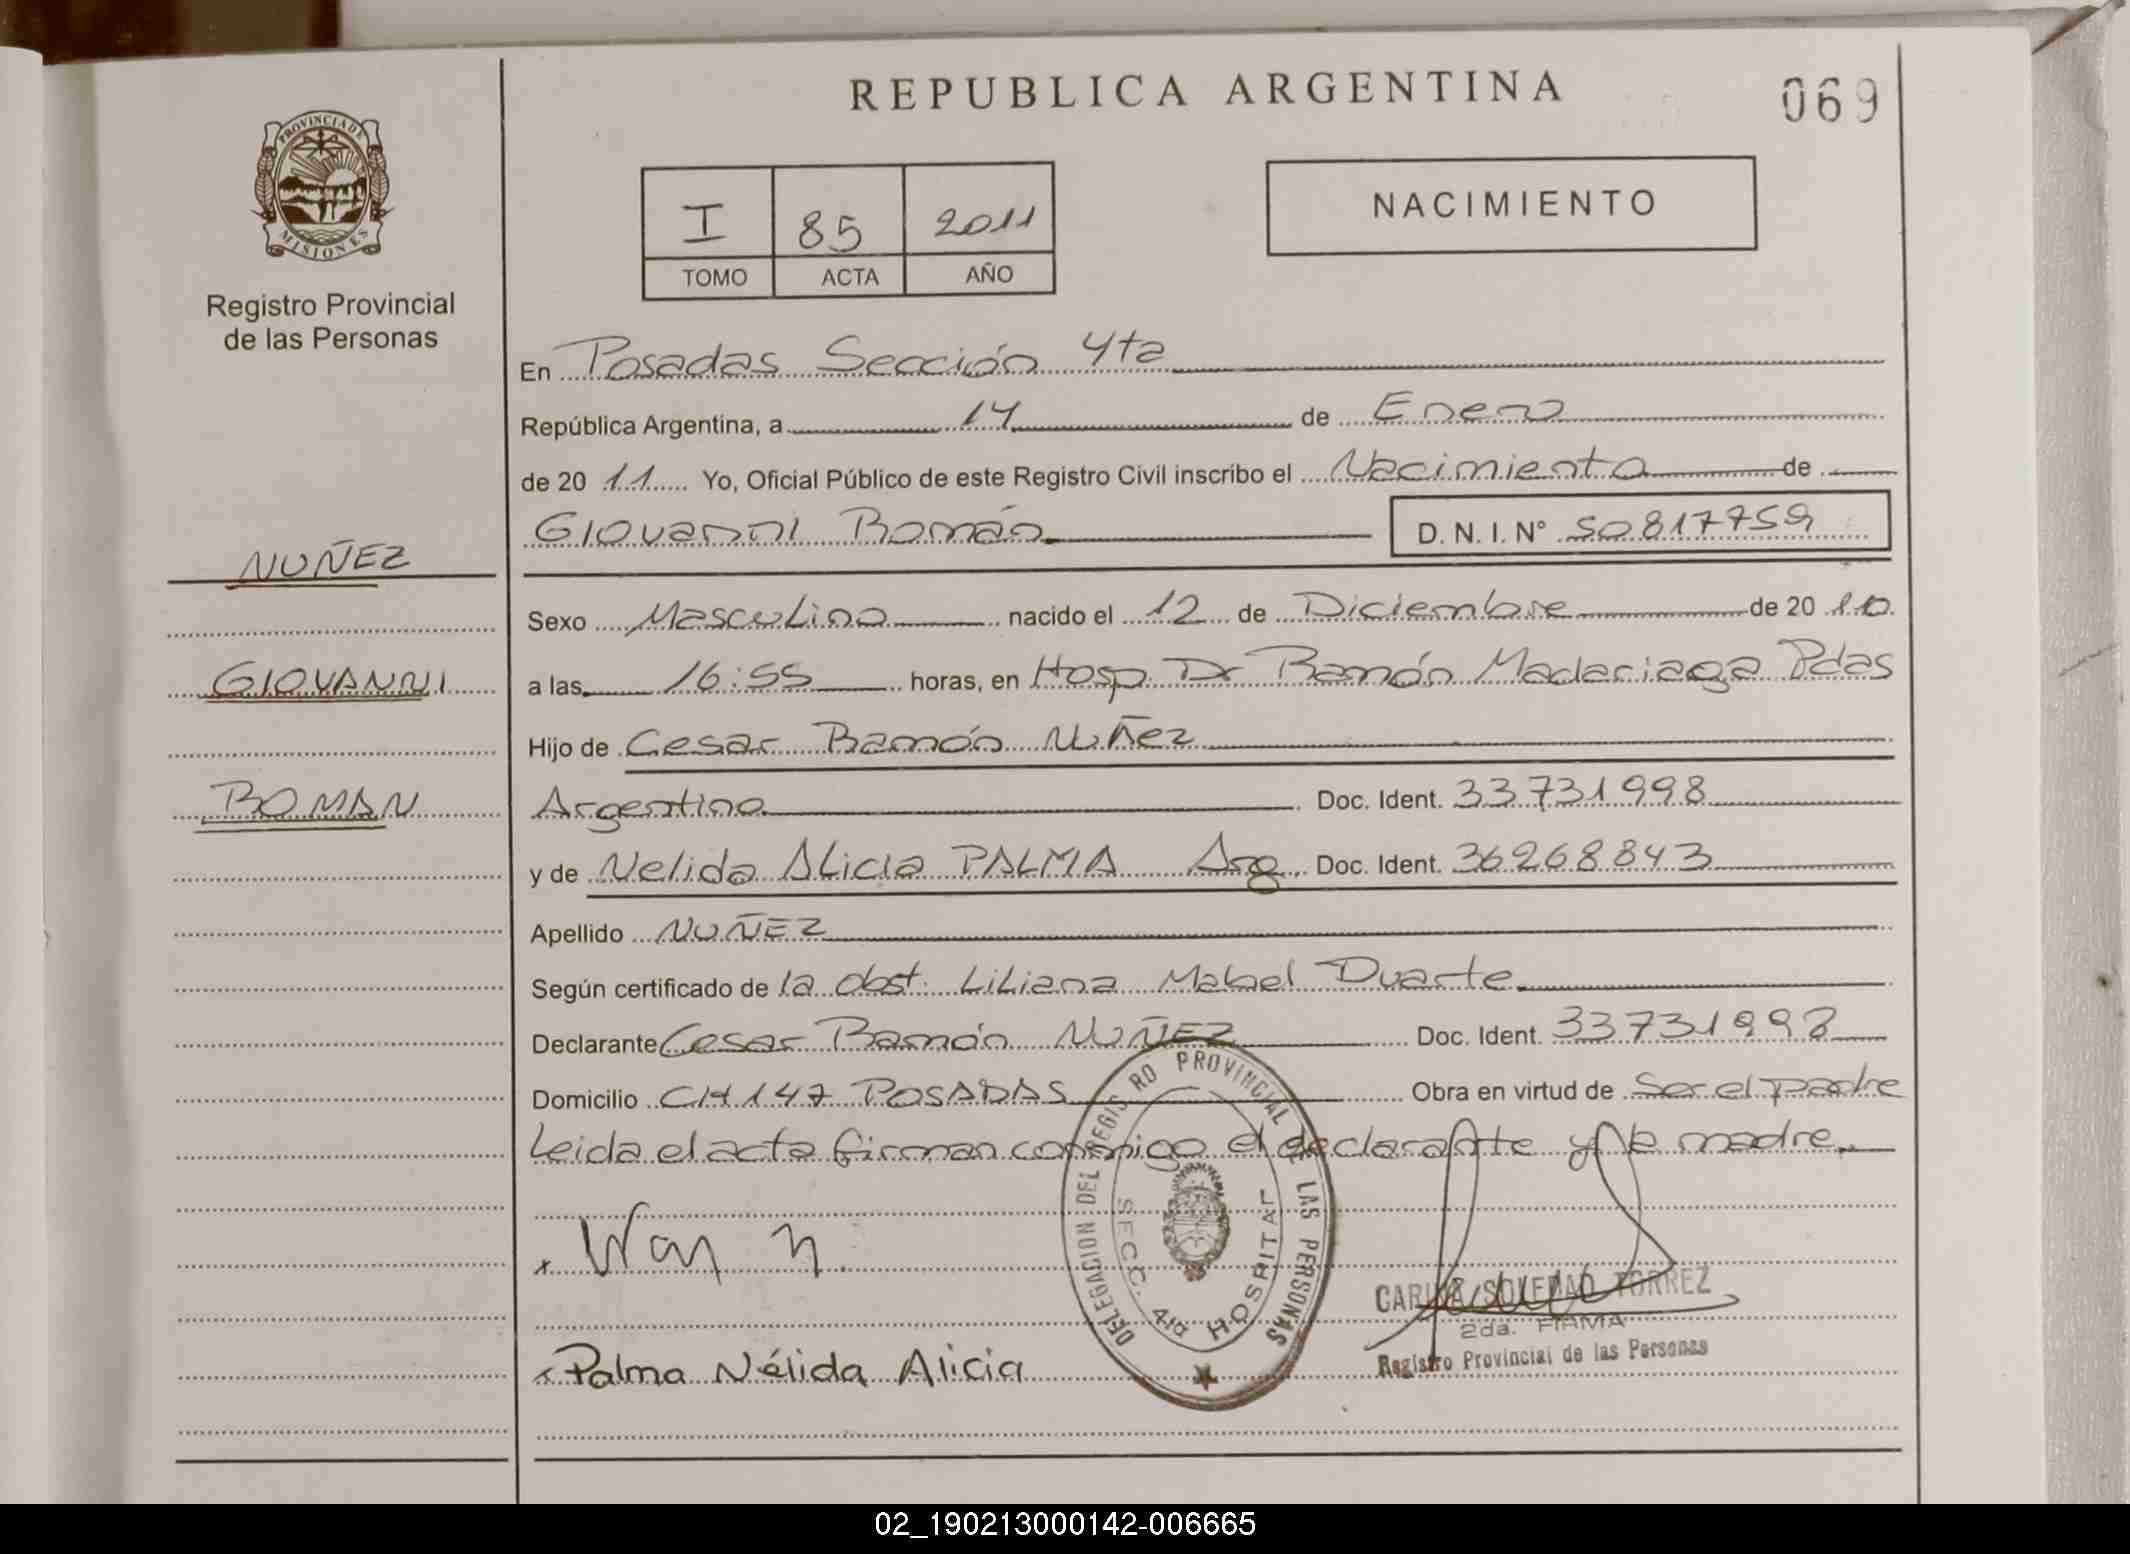 REPUBLICA ARGENTINA
069
PROVINCIA DE
MISIONES
Registro Provincial
de las Personas
I 85 2011
TOMO ACTA AÑO
NACIMIENTO
En Posadas Sección 4ta
República Argentina, a 14 de Enero
de 20 11 Yo, Oficial Público de este Registro Civil inscribo el Nacimiento de
Giovanni Román D. N. I. N° 50817759
NUÑEZ
GIOVANNI
ROMAN
Sexo Masculino nacido el 12 de Diciembre de 20 10
a las 16:55 horas, en Hosp Dr Ramón Madariaga Pdas
Hijo de Cesar Ramón Nuñez
Argentino Doc. Ident. 33731998
y de Nelida Alicia PALMA Arg Doc. Ident. 36268843
Apellido NUÑEZ
Según certificado de la obst. Liliana Mabel Duarte
Declarante Cesar Ramón NUÑEZ Doc. Ident. 33731998
Domicilio CH 147 POSADAS Obra en virtud de Ser el padre
Leida el acta firman conmigo el declarante y la madre
DELEGACION DEL REGISTRO PROVINCIAL DE LAS PERSONAS
SECC. 4ta HOSPITAL
CARINA SOLEDAD TORREZ
2da. FIRMA
Registro Provincial de las Personas
x Palma Nélida Alicia
02_190213000142-006665